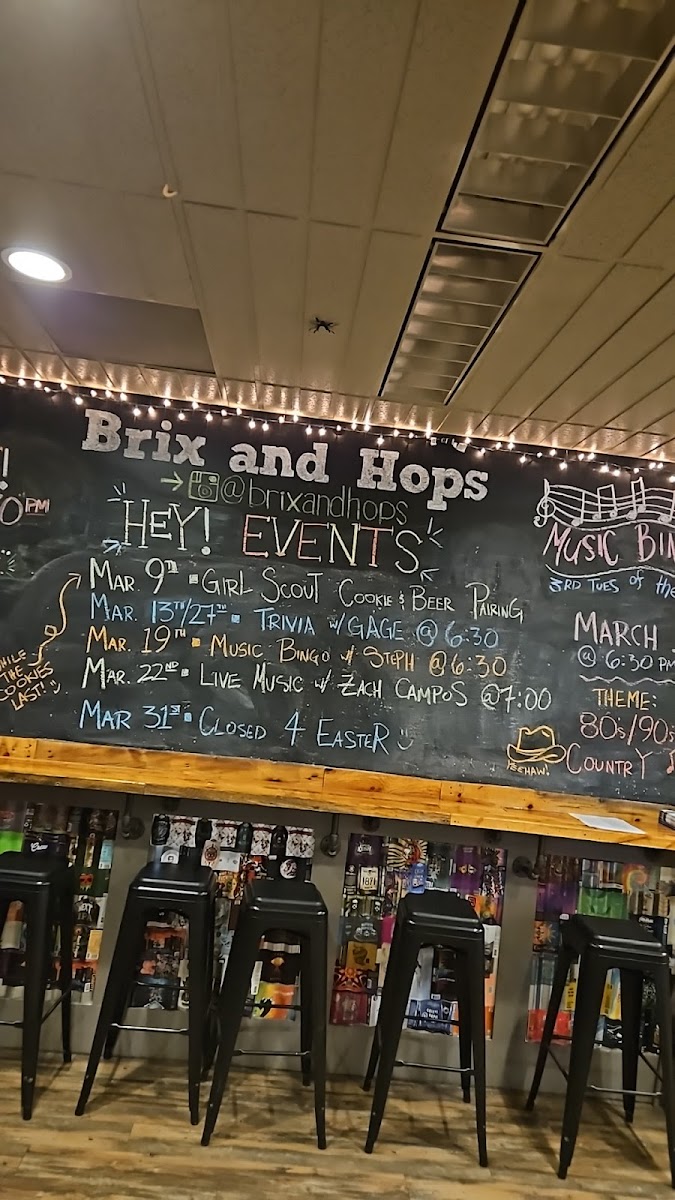 Brix and Hops
@brixandhops
HEY! EVENTS
MAR. 9TH • GIRL SCOUT COOKIE & BEER PAIRING
MAR. 13TH/27TH • TRIVIA W/ GAGE @ 6:30
MAR. 19TH • MUSIC BINGO W/ STEPH @ 6:30
MAR. 22ND • LIVE MUSIC W/ ZACH CAMPOS @7:00
MAR 31ST • CLOSED 4 EASTER
PM
WHILE
THE
COOKIES
LAST!
MUSIC BIN
3RD TUES of the
MARCH
@ 6:30 PM
THEME:
80's/90's
COUNTRY
YEEHAW!